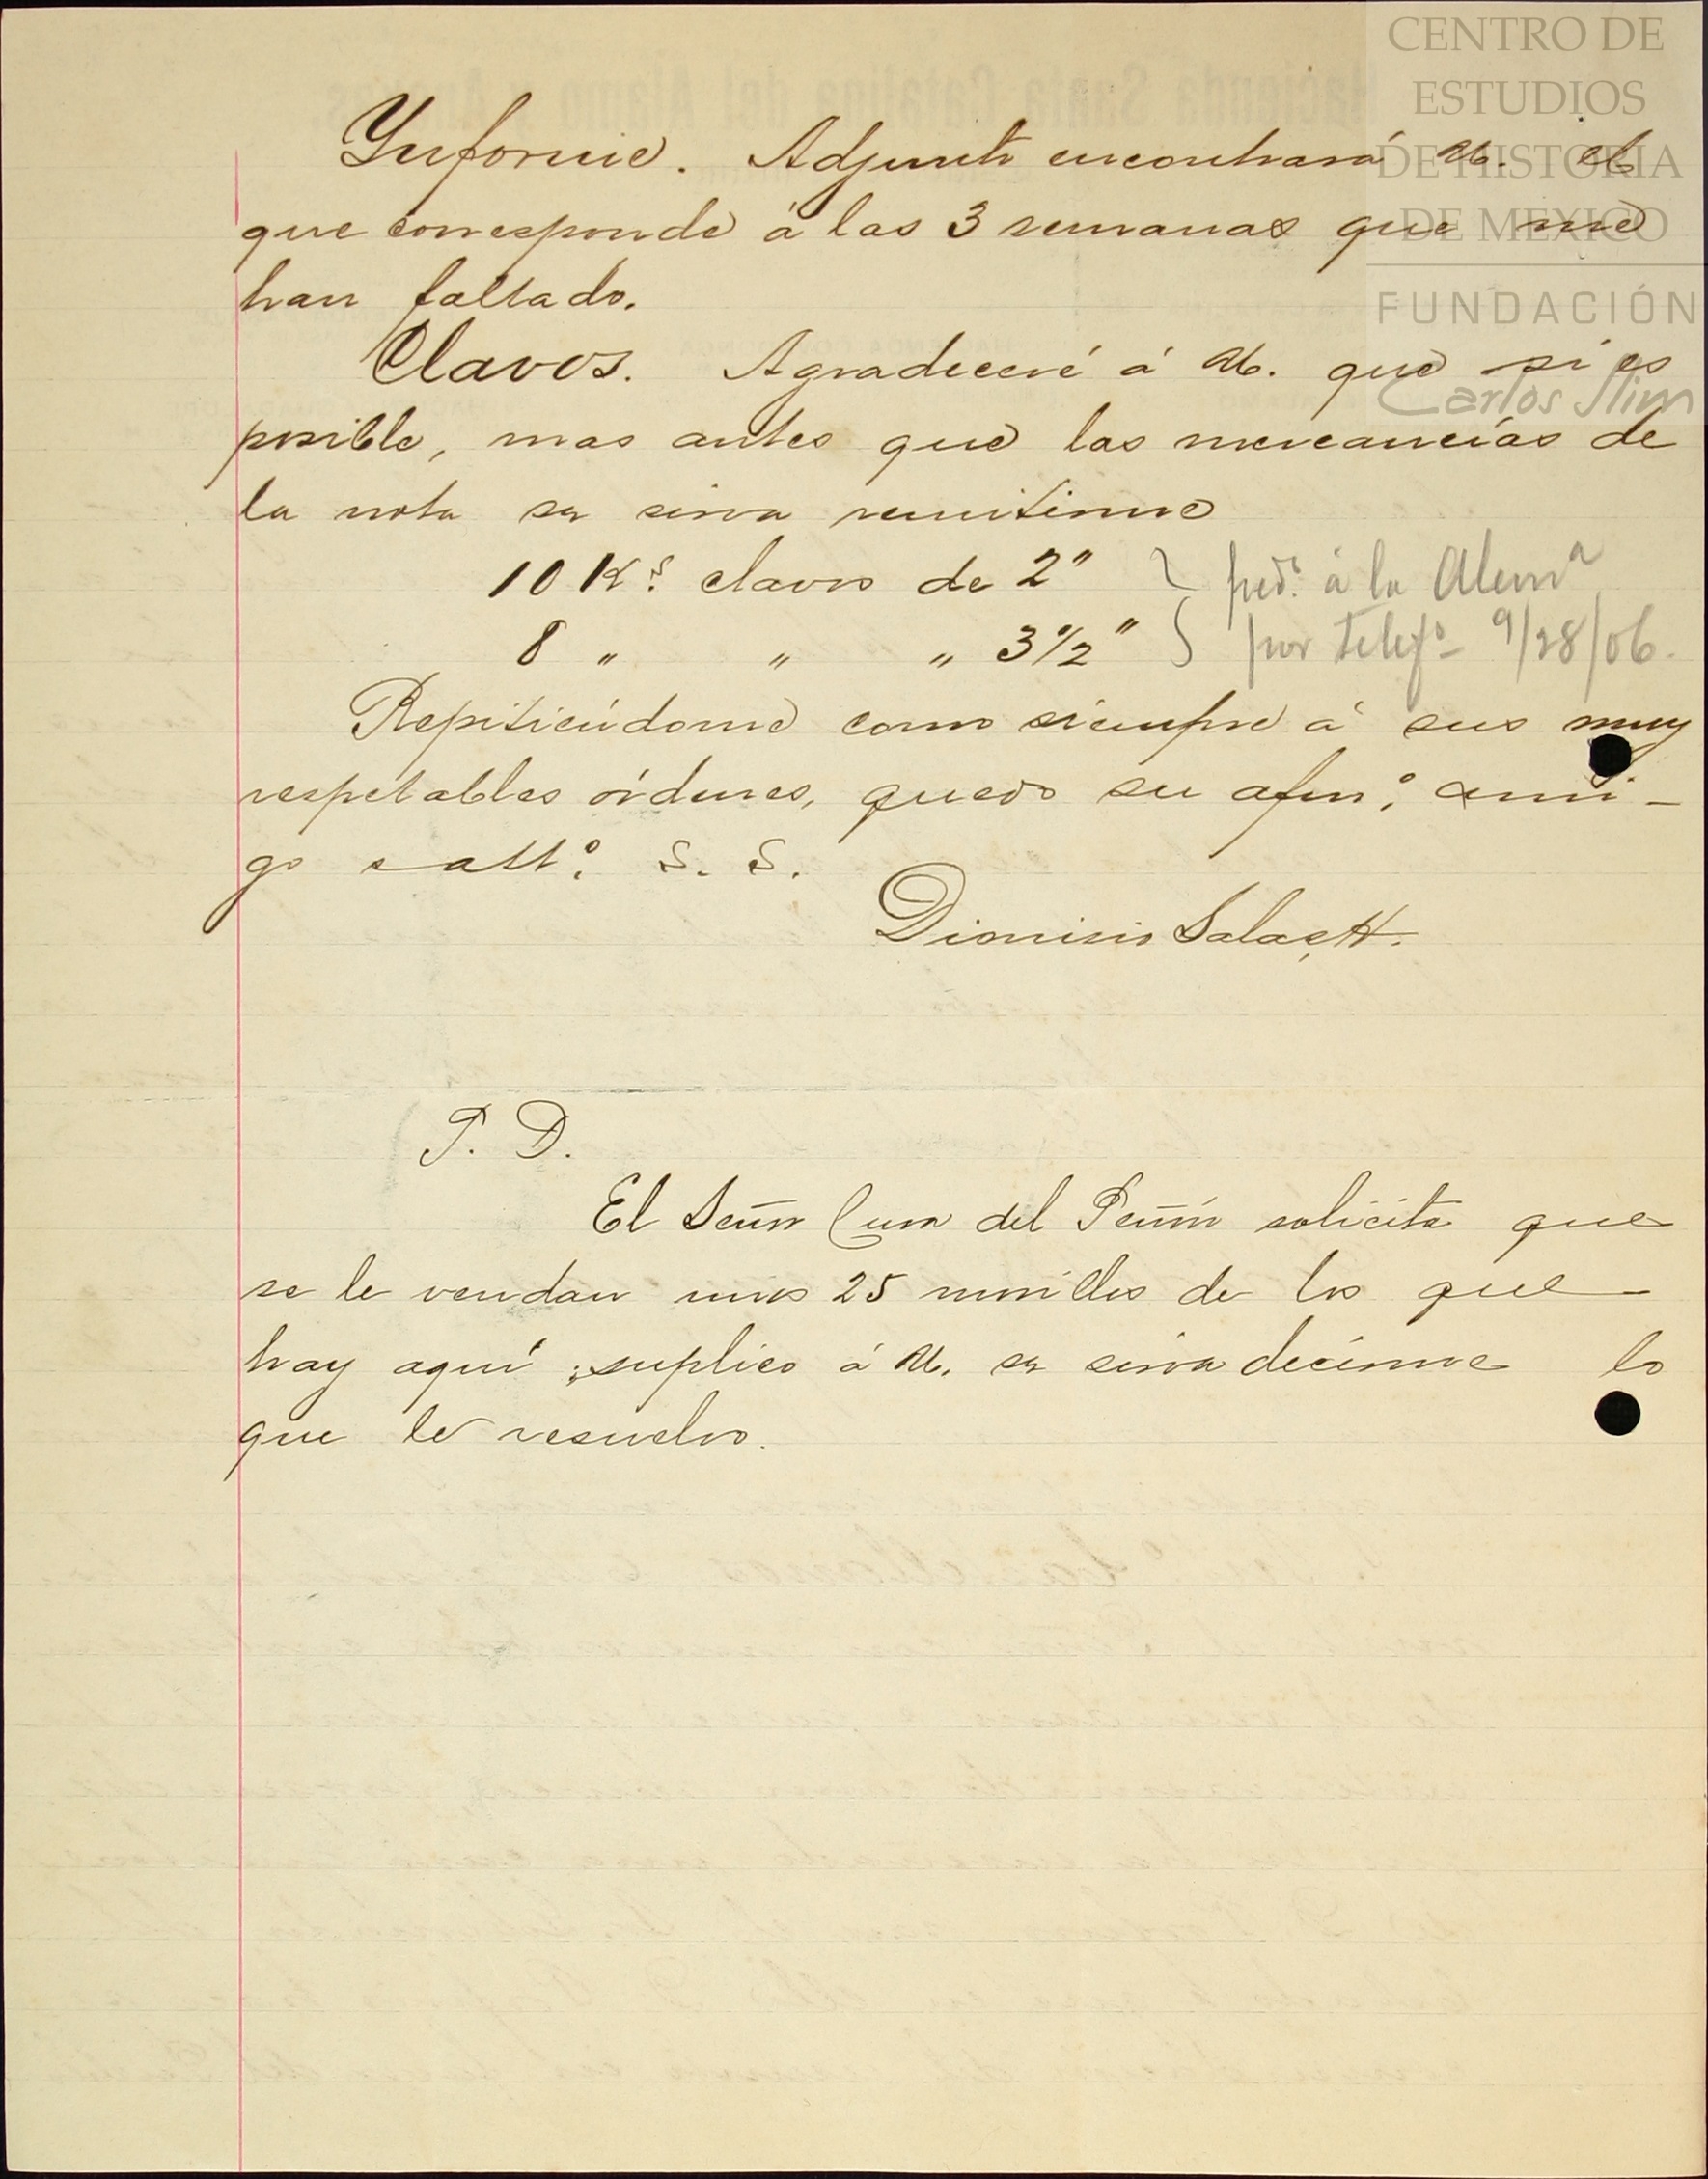 CENTRO DE
ESTUDIOS
DE HISTORIA
DE MEXICO
FUNDACIÓN
Carlos Slim
Ynforme. Adjunto encontrará U. el
que corresponde á las 3 semanas que me
han faltado.
Clavos. Agradeceré á U. que si es
posible, mas antes que las mercancías de
la nota se sirva remitirme
10 Ks. clavos de 2"
8 " " " 3 1/2"
ped.º á la Alemª
por Telefº 9/28/06.
Repitiéndome como siempre á sus muy
respetables órdenes, quedo su afmº. ami-
go y att.º S. S.
Dionisio Salas H.
P. D.
El Señor Cura del Peñón solicita que
se le vendan unos 25 morillos de los que
hay aquí; suplico á U. se sirva decirme lo
que le resuelvo.